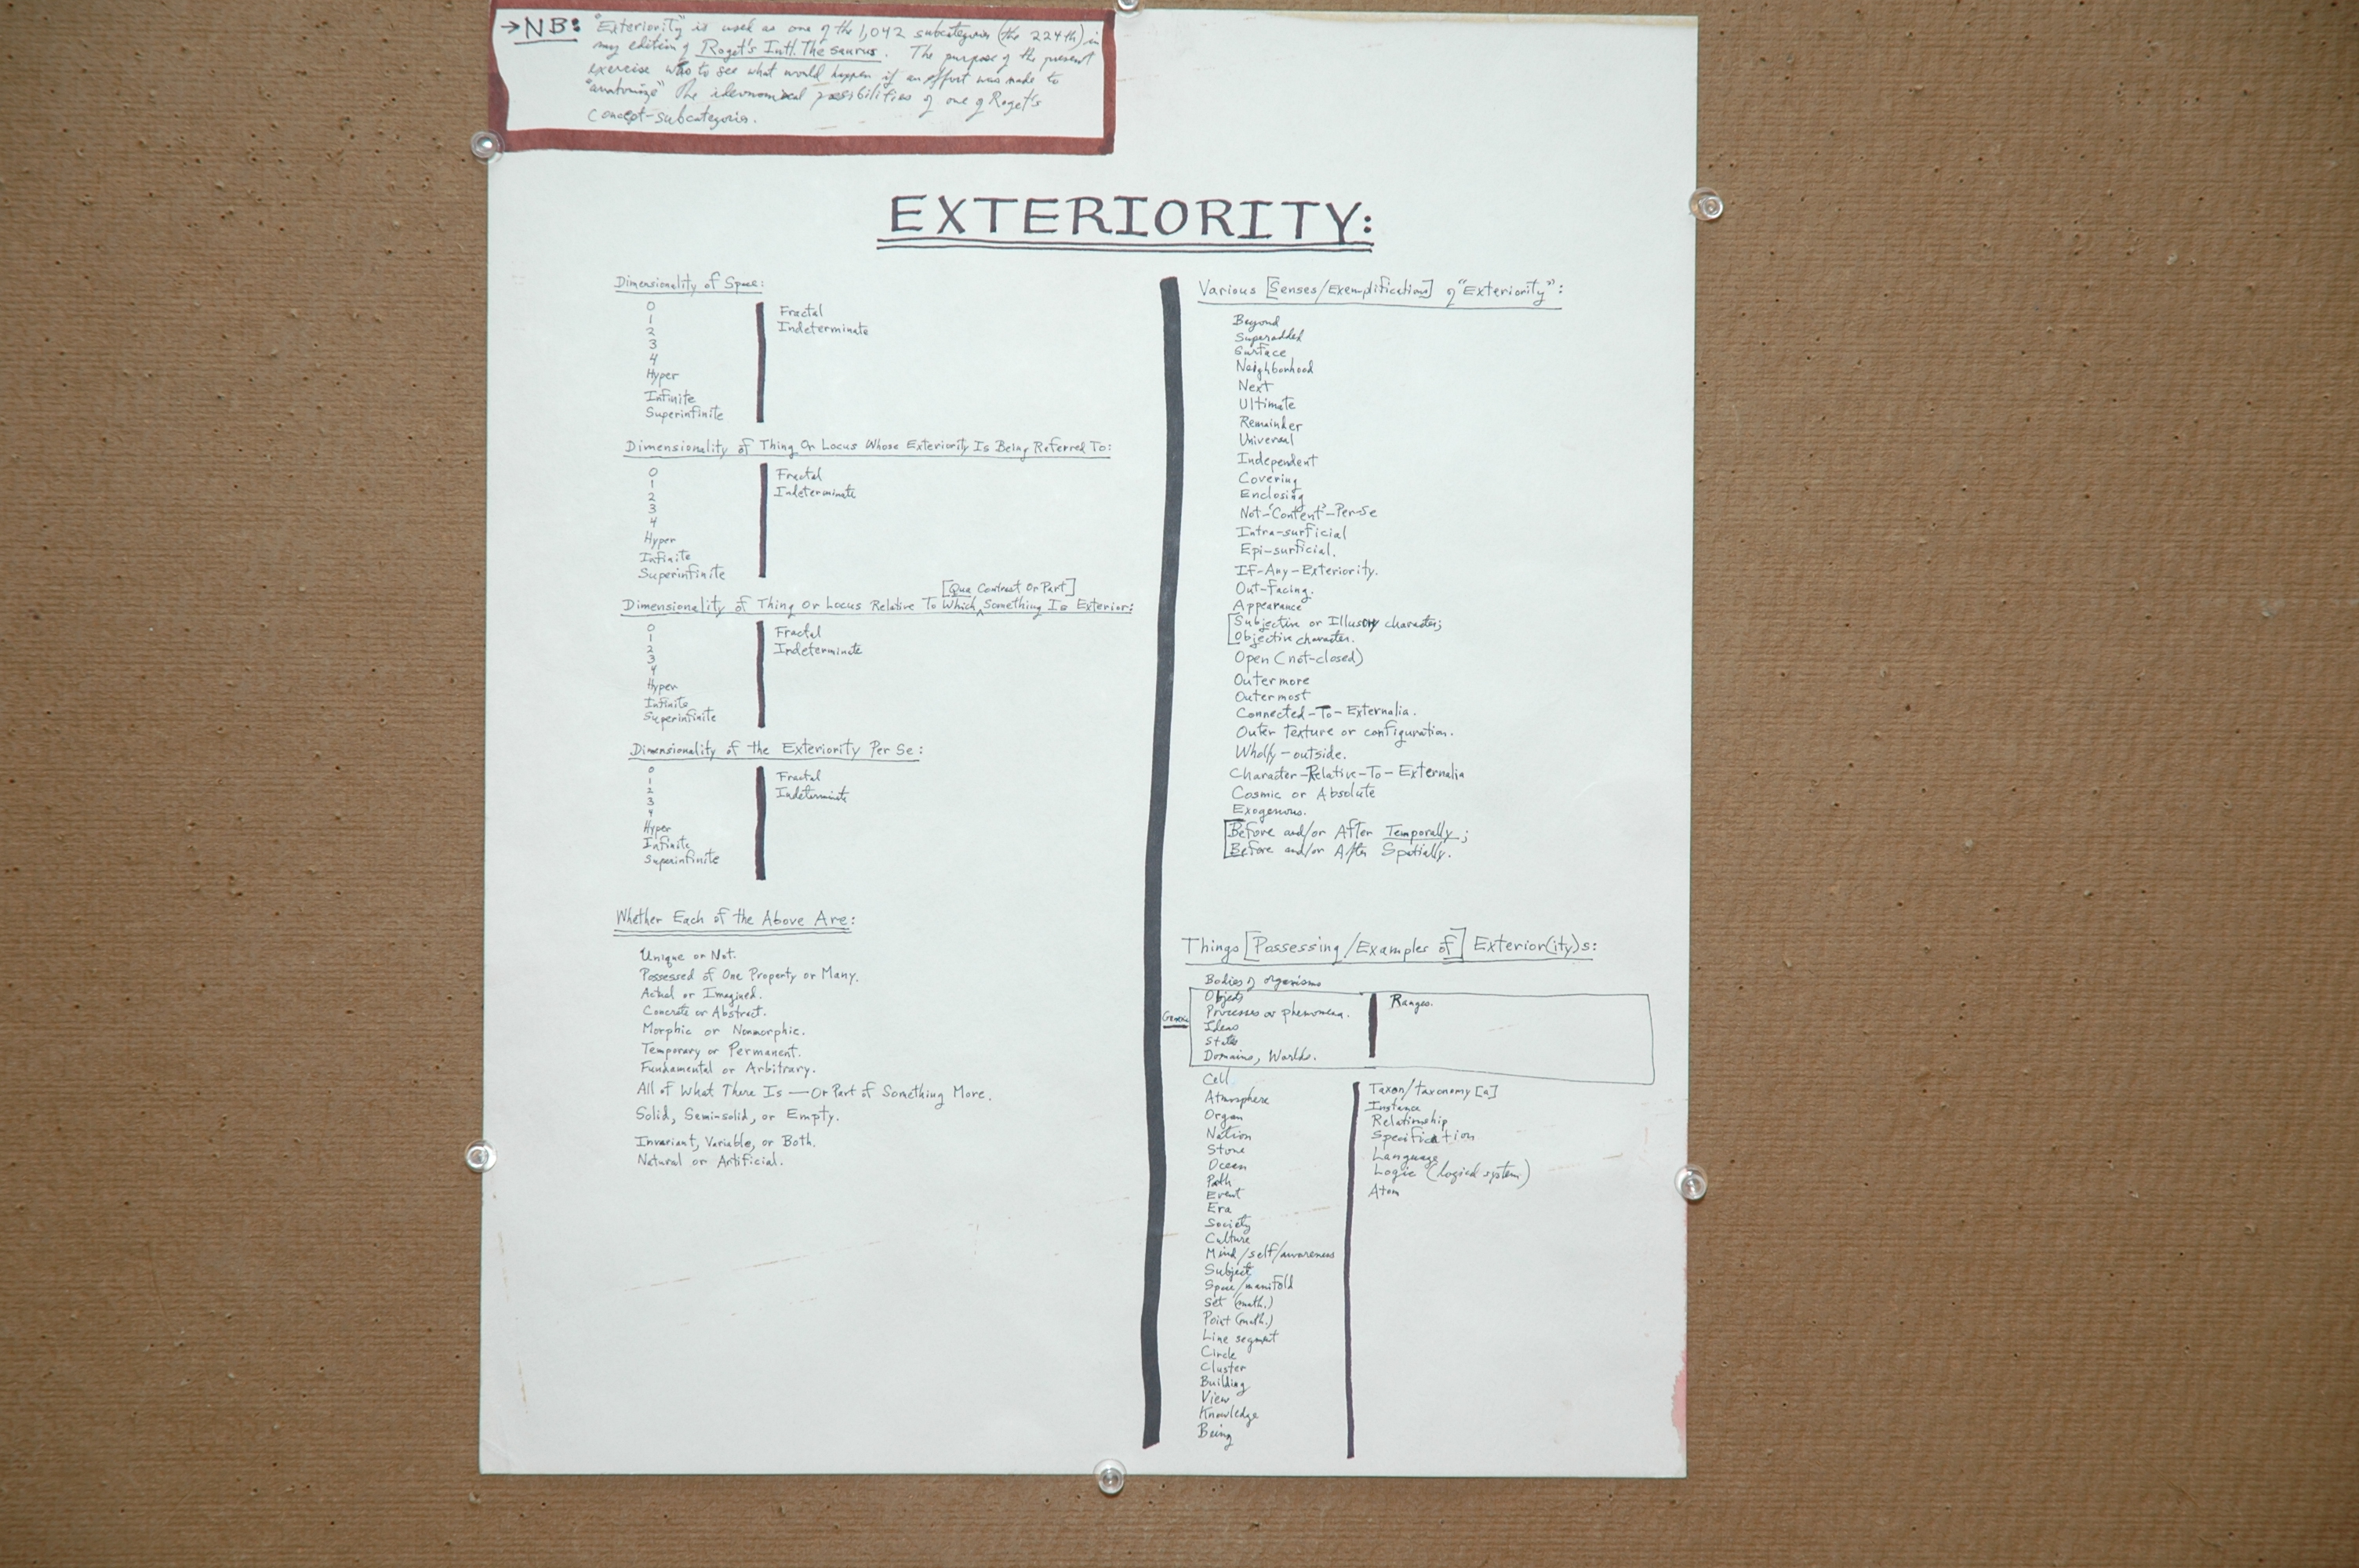 →NB: "Exteriority" is used as one of the 1,042 subcategories (the 224th) in
my edition of Roget's Intl. Thesaurus. The purpose of the present
exercise was to see what would happen if an effort was made to
"anatomize" the ideonomical possibilities of one of Roget's
concept-subcategories.
EXTERIORITY:
Dimensionality of Space:
0
1
2
3
4
Hyper
Infinite
Superinfinite
Fractal
Indeterminate
Dimensionality of Thing Or Locus Whose Exteriority Is Being Referred To:
0
1
2
3
4
Hyper
Infinite
Superinfinite
Fractal
Indeterminate
[Qua Context Or Part]
Dimensionality of Thing Or Locus Relative To Which ^ Something Is Exterior:
0
1
2
3
4
Hyper
Infinite
Superinfinite
Fractal
Indeterminate
Dimensionality of the Exteriority Per Se:
0
1
2
3
4
Hyper
Infinite
Superinfinite
Fractal
Indeterminate
Whether Each of the Above Are:
Unique or Not.
Possessed of One Property or Many.
Actual or Imagined.
Concrete or Abstract.
Morphic or Nonmorphic.
Temporary or Permanent.
Fundamental or Arbitrary.
All of What There Is — Or Part of Something More.
Solid, Semi-solid, or Empty.
Invariant, Variable, or Both.
Natural or Artificial.
Various [Senses/Exemplifications] of "Exteriority":
Beyond
Superadded
Surface
Neighborhood
Next
Ultimate
Remainder
Universal
Independent
Covering
Enclosing
Not-"Content"-Per-Se
Intra-surficial
Epi-surficial.
If-Any-Exteriority.
Out-facing.
Appearance
[Subjective or Illusory character;
Objective character.
Open (not-closed)
Outermore
Outermost
Connected-To-Externalia.
Outer texture or configuration.
Wholly-outside.
Character-Relative-To-Externalia
Cosmic or Absolute
Exogenous.
[Before and/or After Temporally;
Before and/or After Spatially.
Things [Possessing/Examples of] Exterior(ity)s:
Bodies of organisms
Generic
Objects
Processes or phenomena.
Ideas
States
Domains, Worlds.
Ranges.
Cell
Atmosphere
Organ
Nation
Stone
Ocean
Path
Event
Era
Society
Culture
Mind/self/awareness
Subject
Space/manifold
Set (math.)
Point (math.)
Line segment
Circle
Cluster
Building
View
Knowledge
Being
Taxon/taxonomy [a]
Instance
Relationship
Specification
Language
Logic (logical system)
Atom